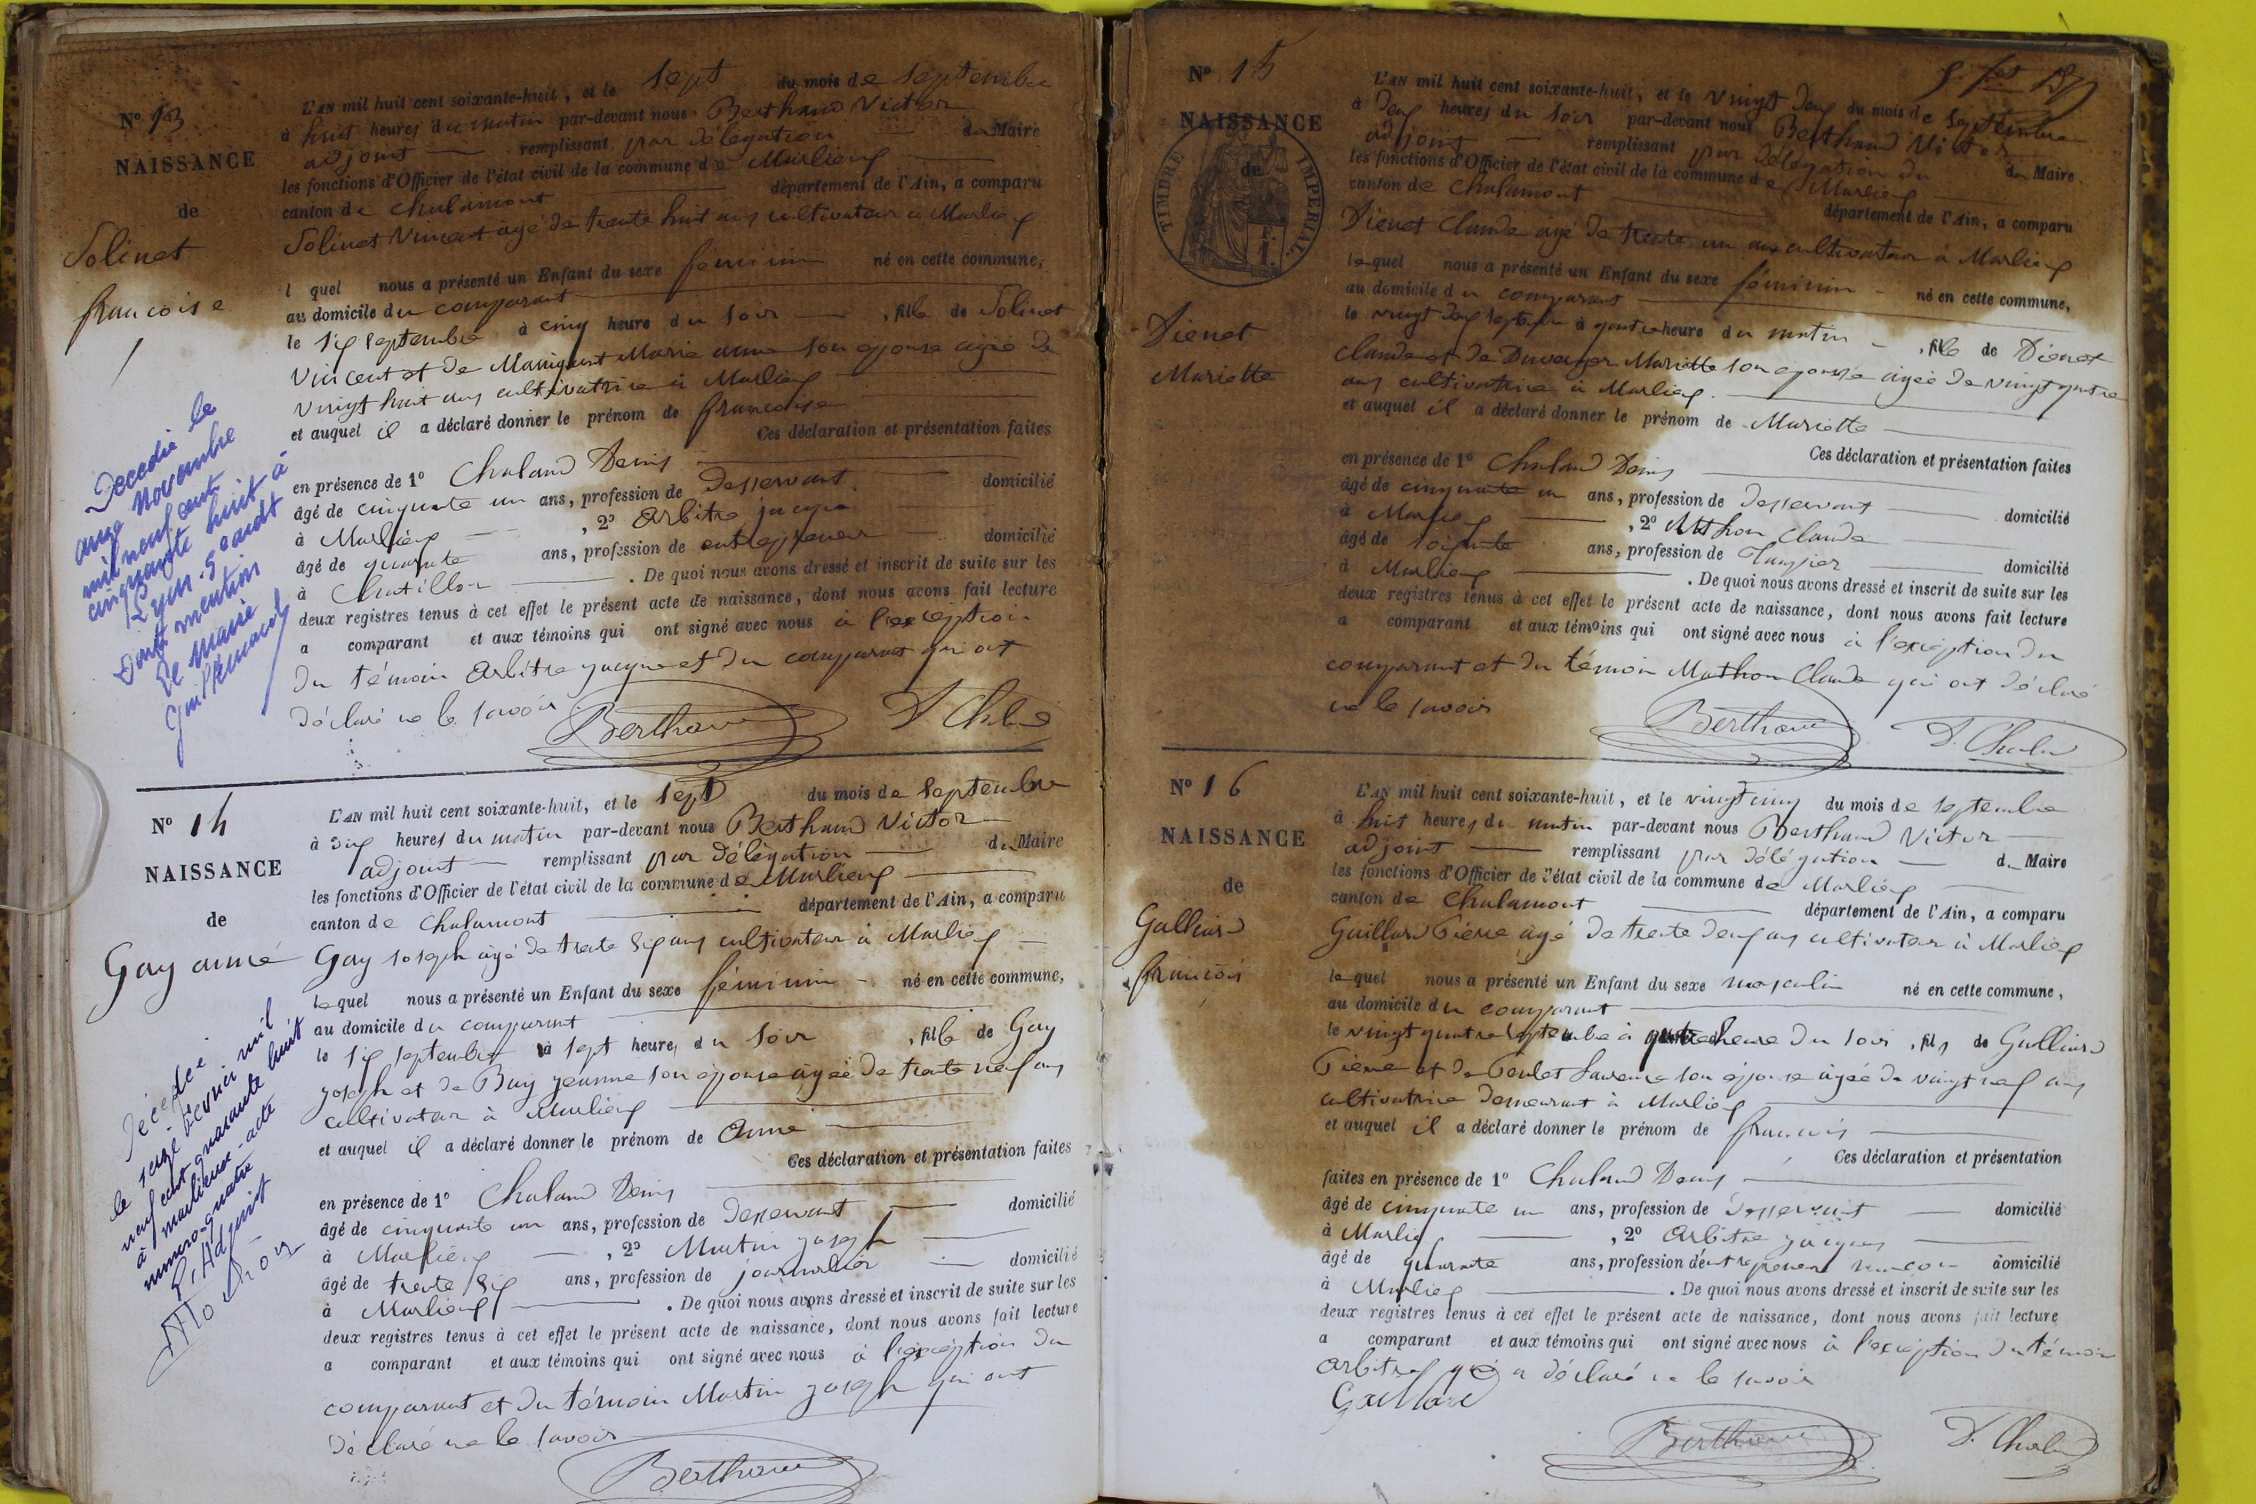 N° 13
NAISSANCE
de
Solinet
francoise
L'AN mil huit cent soixante-huit, et le sept du mois de septembre
à huit heures du matin par-devant nous Berthaud Victor
adjoint remplissant par délégation du Maire
les fonctions d'Officier de l'état civil de la commune de Marlieux
canton de chalamont département de l'Ain, a comparu
Solinet Vincent agé de trente huit ans cultivateur à Marlieux
l quel nous a présenté un Enfant du sexe féminin né en cette commune,
au domicile du comparant
le six septembre à cinq heure du soir , fille de Solinet
Vincent et de Marie anne son épouse agée de
vingt huit ans cultivatrice à Marlieux
et auquel il a déclaré donner le prénom de francoise
Ces déclaration et présentation faites
en présence de 1° Chaland Denis
âgé de cinquante un ans, profession de desservant domicilié
à Marlieux , 2° Arbitre jacque
âgé de quarante ans, profession de entrepreneur domicilié
à Chatillon . De quoi nous avons dressé et inscrit de suite sur les
deux registres tenus à cet effet le présent acte de naissance, dont nous avons fait lecture
a comparant et aux témoins qui ont signé avec nous à l'exception
du témoin Arbitre jacque et du comparant qui ont
déclaré ne le savoir
Berthaud D. Chaland
Decedée le
onze Novembre
mil neuf cent
cinquante huit à
Lyon
Dont mention
Le Maire
N° 14
NAISSANCE
de
Gay anne
L'AN mil huit cent soixante-huit, et le sept du mois de septembre
à dix heures du matin par-devant nous Berthaud Victor
adjoint remplissant par délégation du Maire
les fonctions d'Officier de l'état civil de la commune de Marlieux
canton de Chalamont département de l'Ain, a comparu
Gay joseph agé de trente six ans cultivateur à Marlieux
lequel nous a présenté un Enfant du sexe féminin né en cette commune,
au domicile du comparant
le six septembre à sept heures du soir , fille de Gay
joseph et de Buy jeanne son épouse agée de trente neuf ans
cultivateur à Marlieux
et auquel il a déclaré donner le prénom de Anne
Ces déclaration et présentation faites
en présence de 1° Chaland Denis
âgé de cinquante un ans, profession de desservant domicilié
à Marlieux , 2° Martin joseph
âgé de trente six ans, profession de journalier domicilié
à Marlieux . De quoi nous avons dressé et inscrit de suite sur les
deux registres tenus à cet effet le présent acte de naissance, dont nous avons fait lecture
a comparant et aux témoins qui ont signé avec nous à l'exception du
comparant et du témoin Martin joseph qui ont
déclaré ne le savoir
Berthaud
Décédée
le seize février mil
neuf cent quarante huit
à marlieux - acte
numero quatre
L'Adjoint
N° 15
NAISSANCE
de
TIMBRE IMPERIAL
Dienet
Mariette
L'AN mil huit cent soixante-huit, et le vingt deux du mois de septembre
à deux heures du soir par-devant nous Berthaud Victor
adjoint remplissant par délégation du du Maire
les fonctions d'Officier de l'état civil de la commune de Marlieux
canton de chalamont département de l'Ain, a comparu
Dienet Claude agé de trente un ans cultivateur à Marlieux
lequel nous a présenté un Enfant du sexe féminin né en cette commune,
au domicile du comparant
le vingt deux septembre à quatre heure du matin , fille de Dienet
Claude et de Mariette son épouse agée de vingt quatre
ans cultivatrice à Marlieux
et auquel il a déclaré donner le prénom de Mariette
Ces déclaration et présentation faites
en présence de 1° Chaland Denis
âgé de cinquante un ans, profession de desservant domicilié
à Marlieux , 2° Mathon Claude
âgé de soixante ans, profession de domicilié
à Marlieux . De quoi nous avons dressé et inscrit de suite sur les
deux registres tenus à cet effet le présent acte de naissance, dont nous avons fait lecture
a comparant et aux témoins qui ont signé avec nous à l'exception du
comparant et du témoin Mathon Claude qui ont déclaré
ne le savoir
Berthaud D. Chaland
N° 16
NAISSANCE
de
Galliard
francois
L'AN mil huit cent soixante-huit, et le vingt cinq du mois de septembre
à huit heures du matin par-devant nous Berthaud Victor
adjoint remplissant par délégation du Maire
les fonctions d'Officier de l'état civil de la commune de Marlieux
canton de Chalamont département de l'Ain, a comparu
Gaillard Pierre agé de trente deux ans cultivateur à Marlieux
lequel nous a présenté un Enfant du sexe masculin né en cette commune,
au domicile du comparant
le vingt quatre septembre à quatre heure du soir , fils de Galliard
Pierre et de son épouse agée de vingt neuf ans
cultivatrice demeurant à Marlieux
et auquel il a déclaré donner le prénom de francois
Ces déclaration et présentation
faites en présence de 1° Chaland Denis
âgé de cinquante un ans, profession de desservant domicilié
à Marlieux , 2° Arbitre jacques
âgé de quarante ans, profession d'entrepreneur macon domicilié
à Marlieux . De quoi nous avons dressé et inscrit de suite sur les
deux registres tenus à cet effet le présent acte de naissance, dont nous avons fait lecture
a comparant et aux témoins qui ont signé avec nous à l'exception du témoin
Arbitre qui a déclaré ne le savoir
Gaillard
Berthaud D. Chaland